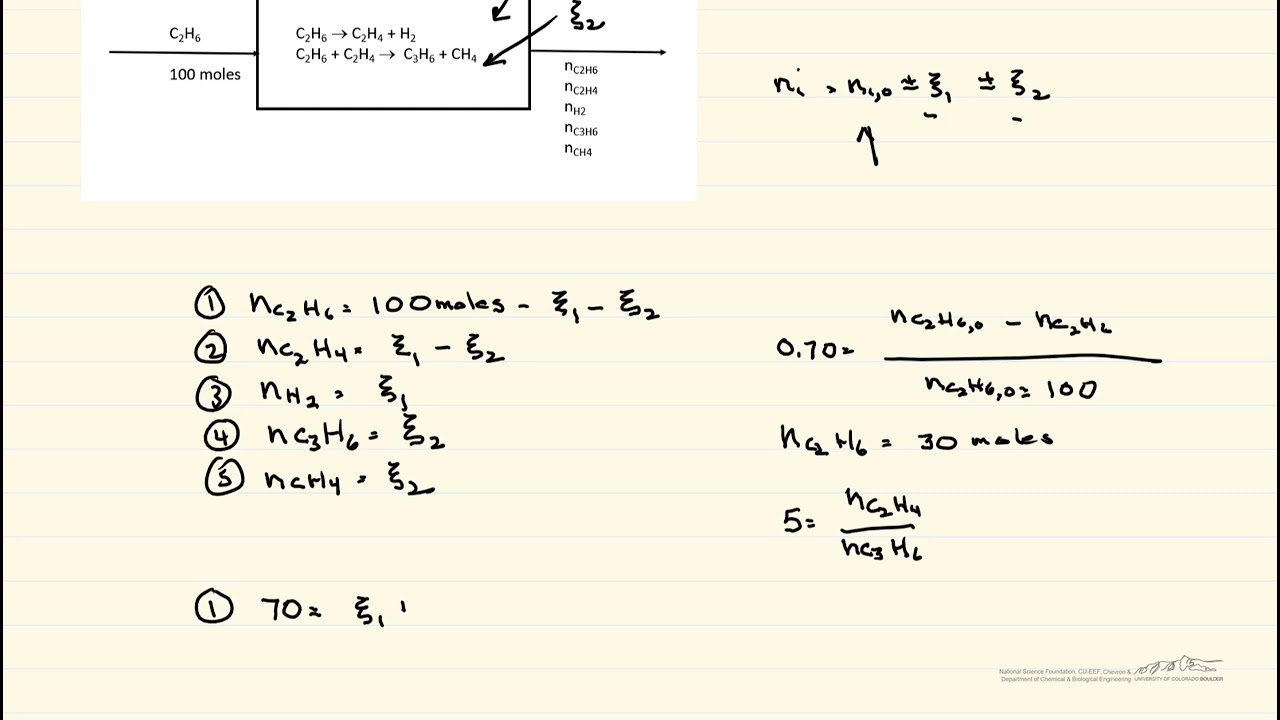 C₂H₆
100 moles
C₂H₆ → C₂H₄ + H₂
C₂H₆ + C₂H₄ → C₃H₆ + CH₄
ξ₂
nC2H6
nC2H4
nH2
nC3H6
nCH4
nᵢ = nᵢ,₀ ± ξ₁ ± ξ₂
① nC₂H₆ = 100 moles - ξ₁ - ξ₂
② nC₂H₄ = ξ₁ - ξ₂
③ nH₂ = ξ₁
④ nC₃H₆ = ξ₂
⑤ nCH₄ = ξ₂
① 70 = ξ₁
0.70 =
nC₂H₆,₀ - nC₂H₆
nC₂H₆,₀ = 100
nC₂H₆ = 30 moles
5 =
nC₂H₄
nC₃H₆
National Science Foundation, CU-EEF, Chevron &
Department of Chemical & Biological Engineering UNIVERSITY OF COLORADO BOULDER